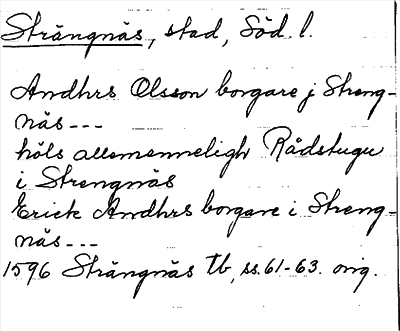 Strängnäs, stad, Söd. l.
Andhrs Olsson borgare j Streng-
näs---
höls allemenneligh Rådstugu
i Strengnäs
Erick Andhrs borgare i Streng-
näs---
1596 Strängnäs tb, ss. 61-63. orig.